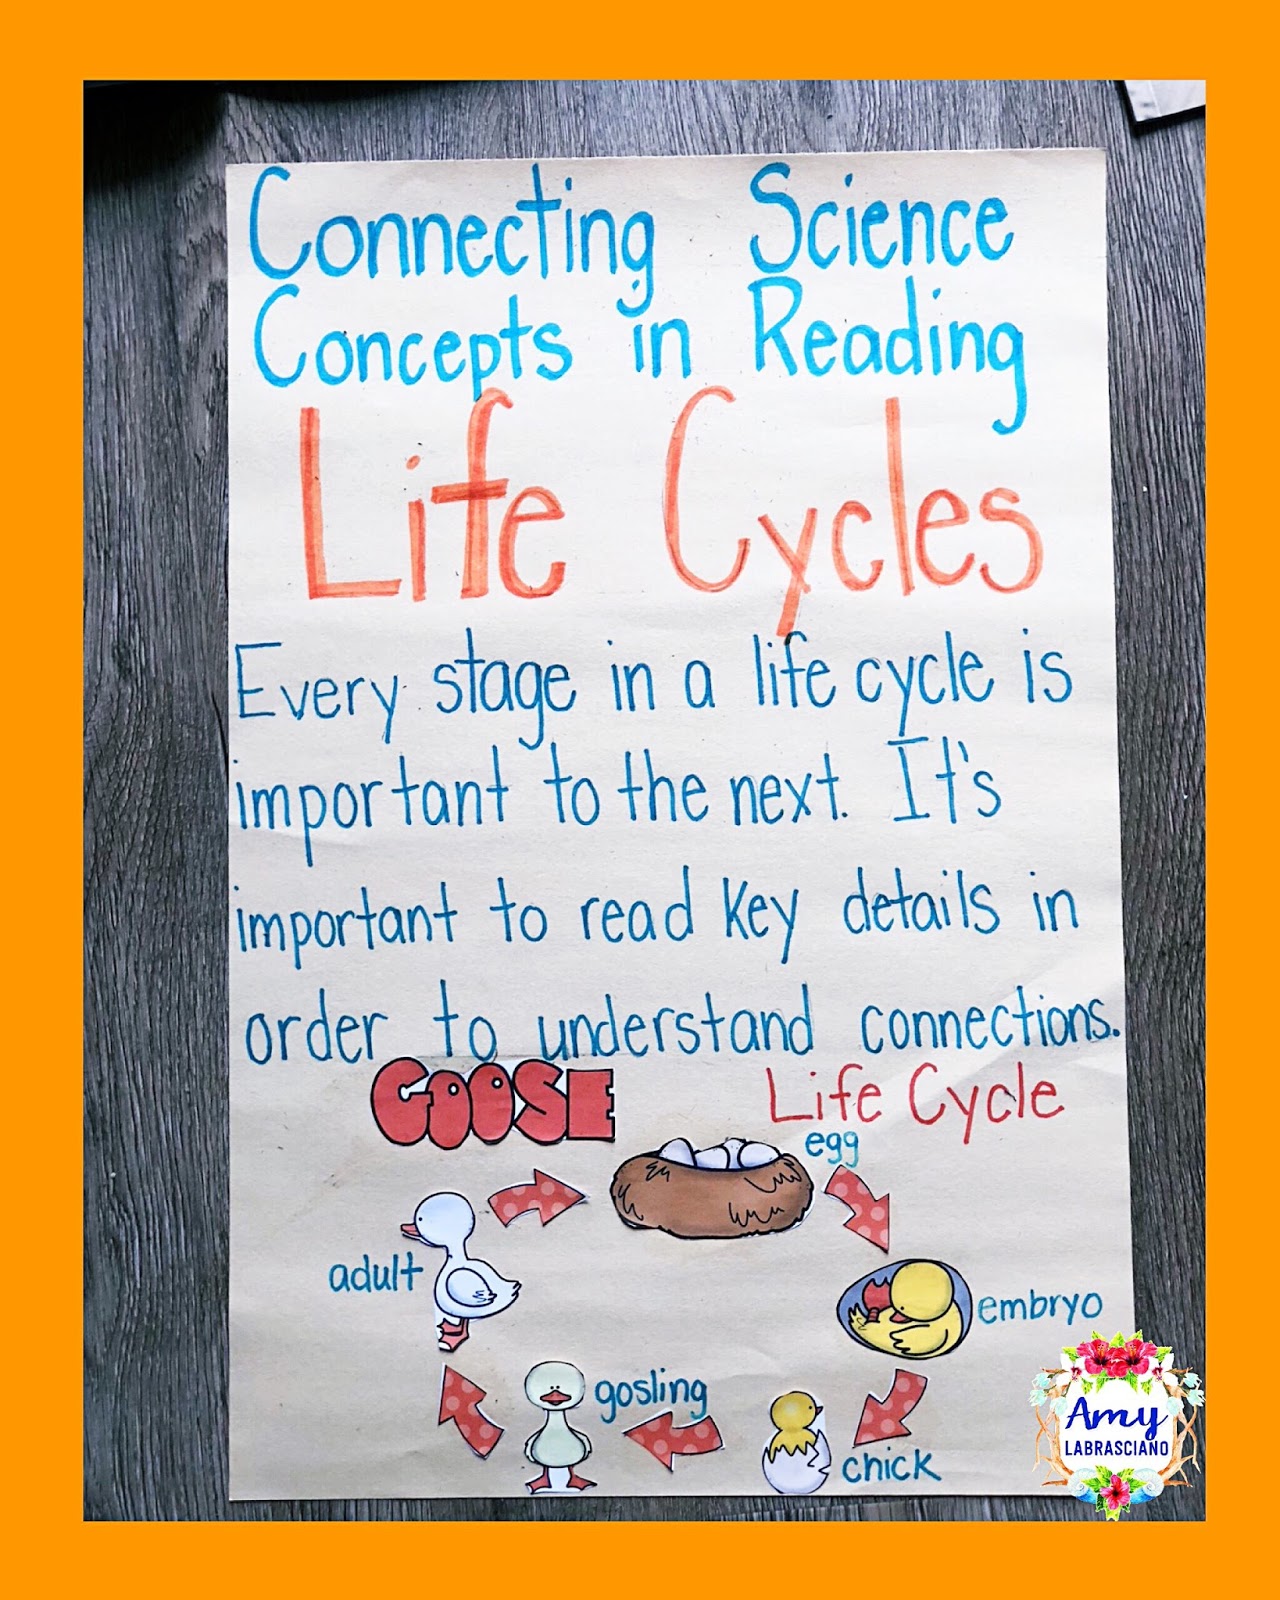 Connecting Science
Concepts in Reading
Life Cycles
Every stage in a life cycle is
important to the next. It's
important to read key details in
order to understand connections.
GOOSE Life Cycle
egg
embryo
chick
gosling
adult
Amy
LABRASCIANO